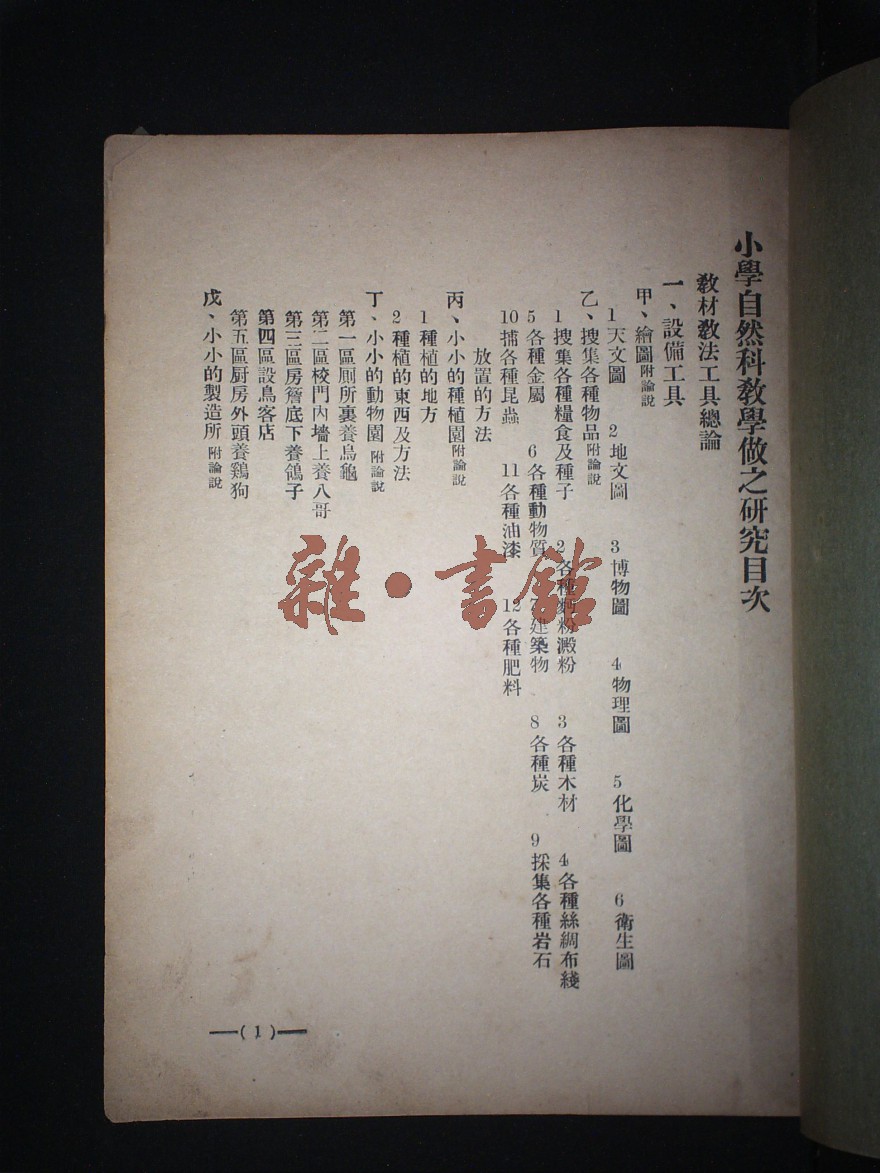 小學自然科教學做之研究目次
教材教法工具總論
一、設備工具
甲、繪圖附論說
1天文圖 2地文圖 3博物圖 4物理圖 5化學圖 6衛生圖
乙、搜集各種物品附論說
1搜集各種糧食及種子 2各種麪粉澱粉 3各種木材 4各種絲綢布綫
5各種金屬 6各種動物質 7建築物 8各種炭 9採集各種岩石
10捕各種昆蟲 11各種油漆 12各種肥料
放置的方法
丙、小小的種植園附論說
1種植的地方
2種植的東西及方法
丁、小小的動物園附論說
第一區厠所裏養烏龜
第二區校門內墻上養八哥
第三區房簷底下養鴿子
第四區設鳥客店
第五區厨房外頭養鷄狗
戊、小小的製造所附論說
—(1)—
雜·書館